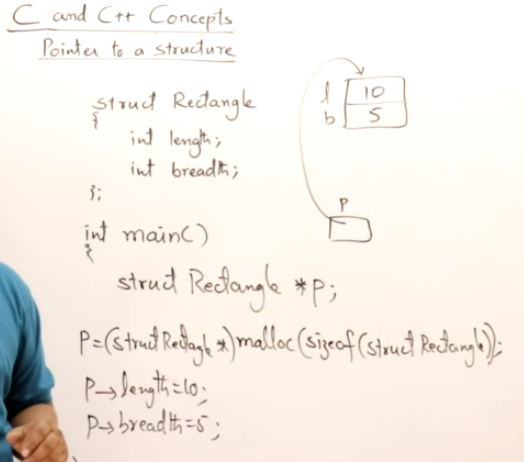 C and C++ Concepts
Pointer to a structure
struct Rectangle
{
int length;
int breadth;
};
int main()
{
struct Rectangle *p;
P=(struct Rectagle *)malloc(sizeof(struct Rectangle));
P→length=10;
P→breadth=5;
l 10
b 5
P